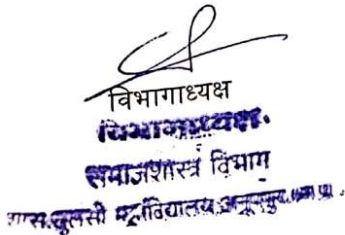 विभागाध्यक्ष
विभागाध्यक्ष.
समाजशास्त्र विभाग
शास. तुलसी महाविद्यालय, अनूपपुर म.प्र.